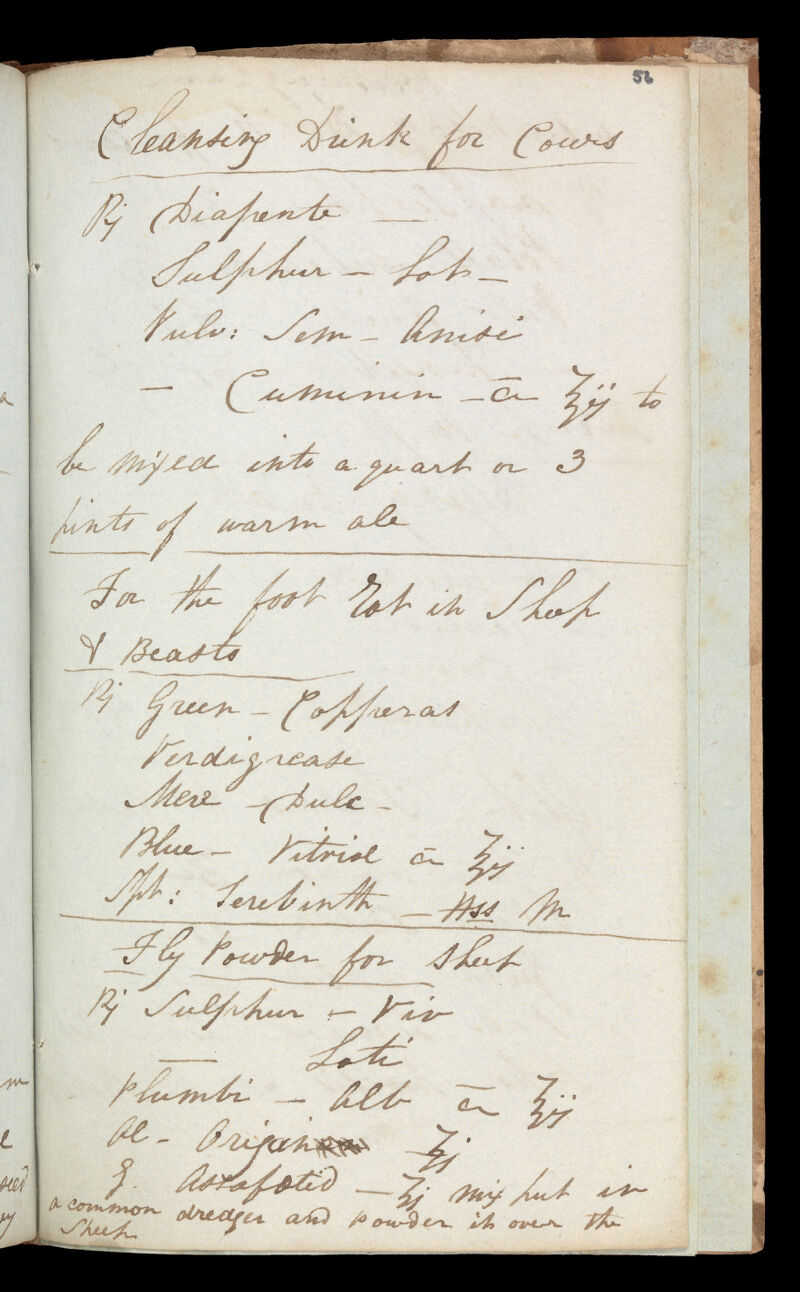 56
Cleansing Drink for Cows
℞ Diapente —
Sulphur — Lot —
Pulv: Sem — Anisi
— Cuminin — ā ℥ij to
be mixed into a quart or 3
pints of warm ale
For the foot Rot in Sheep
& Beasts
℞ Green — Copperas
Verdigrease
Merc — Dulc —
Blue — Vitriol ā ℥ij
Spt: Terebinth — ℔ss M
Fly Powder for Sheep
℞ Sulphur — Viv
— Loti
Plumbi — Alb ā ℥ij
Ol — Origan ℥j
G. Assafœtid — ℥j mix put in
a common dredger and powder it over the
Sheep